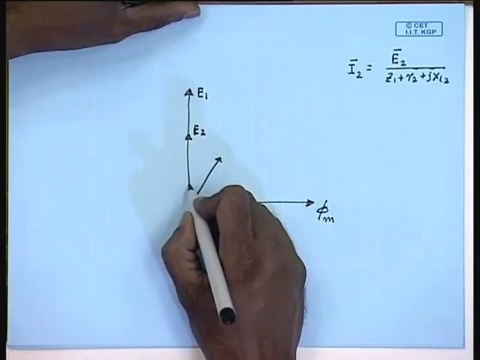 © CET
I.I.T. KGP
Ī₂ = Ē₂ / z₁+r₂+jx₁₂
E₁
E₂
ϕₘ